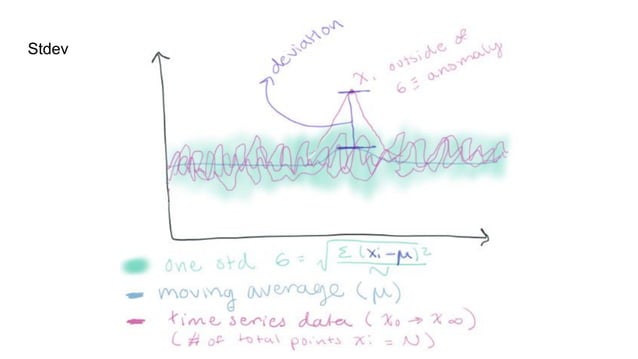 Stdev
deviation
x, outside of
6 ≡ anomaly
one std 6 = √(Σ(xi-μ)²/N)
moving average (μ)
time series data (x0 → x∞)
(# of total points xi = N)